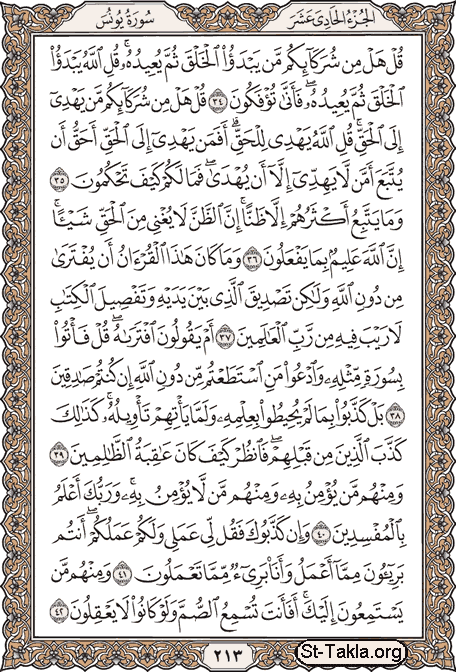 الجُزْءُ الحَادِى عَشَرَ
سُورَةُ يُونُسَ
قُلْ هَلْ مِن شُرَكَآئِكُم مَّن يَبْدَؤُا۟ ٱلْخَلْقَ ثُمَّ يُعِيدُهُۥ ۚ قُلِ ٱللَّهُ يَبْدَؤُا۟
ٱلْخَلْقَ ثُمَّ يُعِيدُهُۥ ۖ فَأَنَّىٰ تُؤْفَكُونَ ٣٤ قُلْ هَلْ مِن شُرَكَآئِكُم مَّن يَهْدِىٓ
إِلَى ٱلْحَقِّ ۚ قُلِ ٱللَّهُ يَهْدِى لِلْحَقِّ ۗ أَفَمَن يَهْدِىٓ إِلَى ٱلْحَقِّ أَحَقُّ أَن
يُتَّبَعَ أَمَّن لَّا يَهِدِّىٓ إِلَّآ أَن يُهْدَىٰ ۖ فَمَا لَكُمْ كَيْفَ تَحْكُمُونَ ٣٥
وَمَا يَتَّبِعُ أَكْثَرُهُمْ إِلَّا ظَنًّا ۚ إِنَّ ٱلظَّنَّ لَا يُغْنِى مِنَ ٱلْحَقِّ شَيْـًٔا ۚ
إِنَّ ٱللَّهَ عَلِيمٌۢ بِمَا يَفْعَلُونَ ٣٦ وَمَا كَانَ هَٰذَا ٱلْقُرْءَانُ أَن يُفْتَرَىٰ
مِن دُونِ ٱللَّهِ وَلَٰكِن تَصْدِيقَ ٱلَّذِى بَيْنَ يَدَيْهِ وَتَفْصِيلَ ٱلْكِتَٰبِ
لَا رَيْبَ فِيهِ مِن رَّبِّ ٱلْعَٰلَمِينَ ٣٧ أَمْ يَقُولُونَ ٱفْتَرَىٰهُ ۖ قُلْ فَأْتُوا۟
بِسُورَةٍ مِّثْلِهِۦ وَٱدْعُوا۟ مَنِ ٱسْتَطَعْتُم مِّن دُونِ ٱللَّهِ إِن كُنتُمْ صَٰدِقِينَ
٣٨ بَلْ كَذَّبُوا۟ بِمَا لَمْ يُحِيطُوا۟ بِعِلْمِهِۦ وَلَمَّا يَأْتِهِمْ تَأْوِيلُهُۥ ۚ كَذَٰلِكَ
كَذَّبَ ٱلَّذِينَ مِن قَبْلِهِمْ ۖ فَٱنظُرْ كَيْفَ كَانَ عَٰقِبَةُ ٱلظَّٰلِمِينَ ٣٩
وَمِنْهُم مَّن يُؤْمِنُ بِهِۦ وَمِنْهُم مَّن لَّا يُؤْمِنُ بِهِۦ ۚ وَرَبُّكَ أَعْلَمُ
بِٱلْمُفْسِدِينَ ٤٠ وَإِن كَذَّبُوكَ فَقُل لِّى عَمَلِى وَلَكُمْ عَمَلُكُمْ ۖ أَنتُم
بَرِيٓـُٔونَ مِمَّآ أَعْمَلُ وَأَنَا۠ بَرِىٓءٌ مِّمَّا تَعْمَلُونَ ٤١ وَمِنْهُم مَّن
يَسْتَمِعُونَ إِلَيْكَ ۚ أَفَأَنتَ تُسْمِعُ ٱلصُّمَّ وَلَوْ كَانُوا۟ لَا يَعْقِلُونَ ٤٢
٢١٣
St-Takla.org